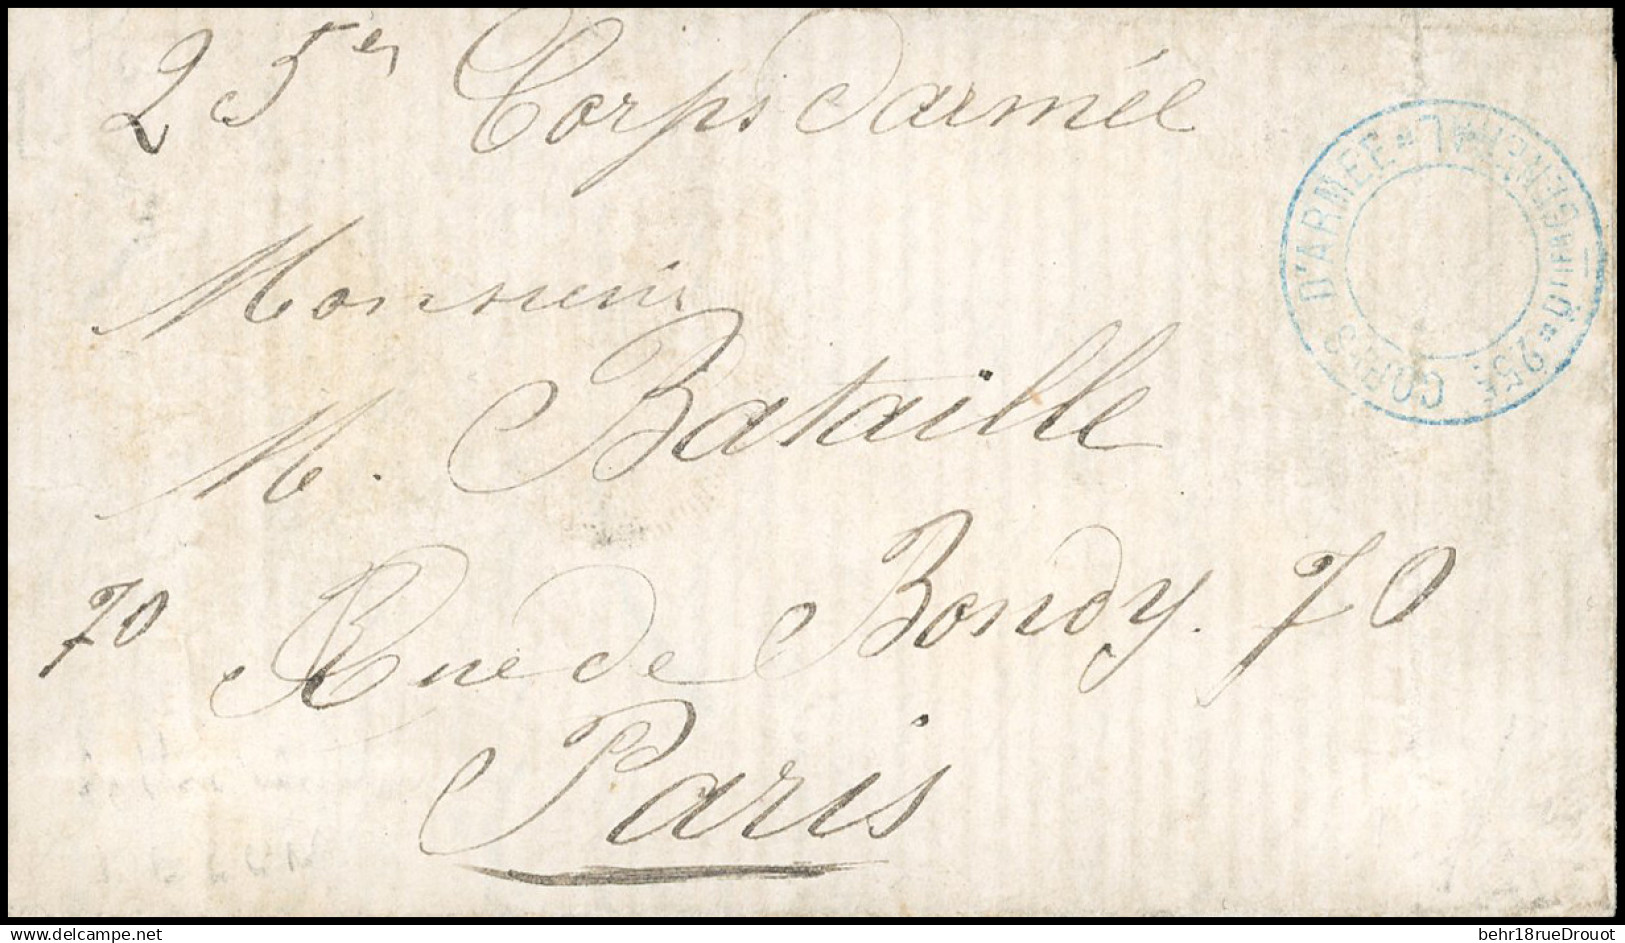 25es Corps d'armée
25E CORPS D'ARMEE * QUARTIER GENERAL *
Monsieur
M. Bataille
70 Rue de Bondy. 70
Paris
delcampe.net
behr18rueDrouot